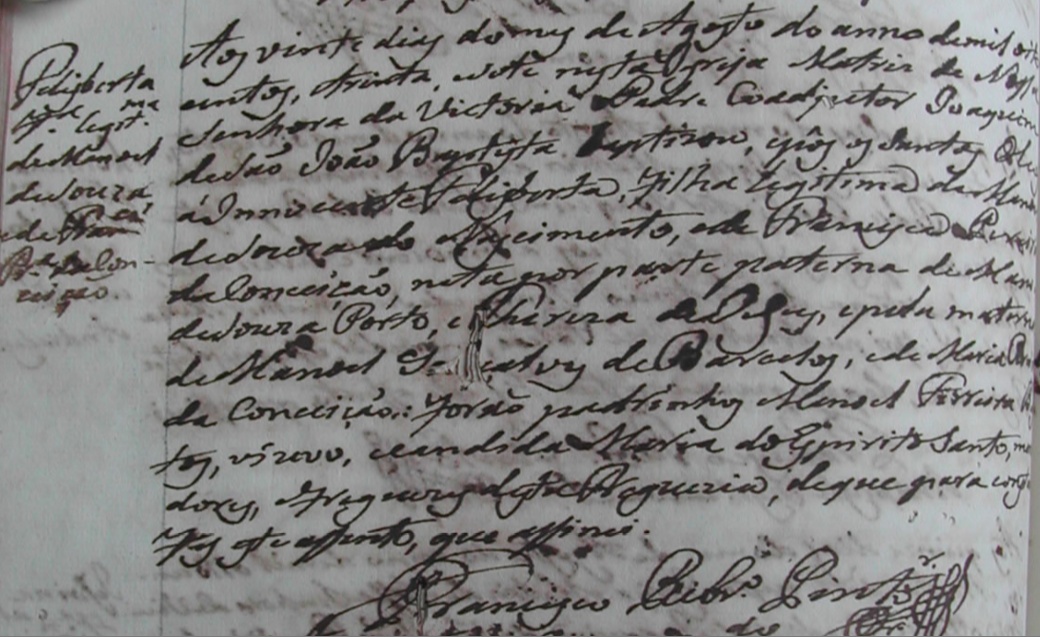 Felisberta
fª legitª
de Manoel
de Souza,
e de Francᶜᵃ
Pª da Con-
ceição.
Aos vinte dias do mes de Agosto do anno de mil oito
centos, trinta, e oito nesta Igreja Matris de Nossa
Senhora da Victoria o Padre Coadjutor Joaquim
de São João Baptista baptizou, e pôs os Santos Oleos
á Innocente Felisberta, filha legitima de Mano
de Souza do Nascimento, e de Francisca Perei
da Conceição, neta por parte paterna de Man
de Souza Porto, e Thereza de Jesus, e pela matern
de Manoel Gonçalves de Barcelos, e de Maria
da Conceição.: forão padrinhos Manoel Ferreira
tos, viuvo, e Candida Maria do Espirito Santo, mo
dores, e freguezes desta Freguezia, de que para const
fis este assento, que assinei.
Francisco Ribrº Pinto